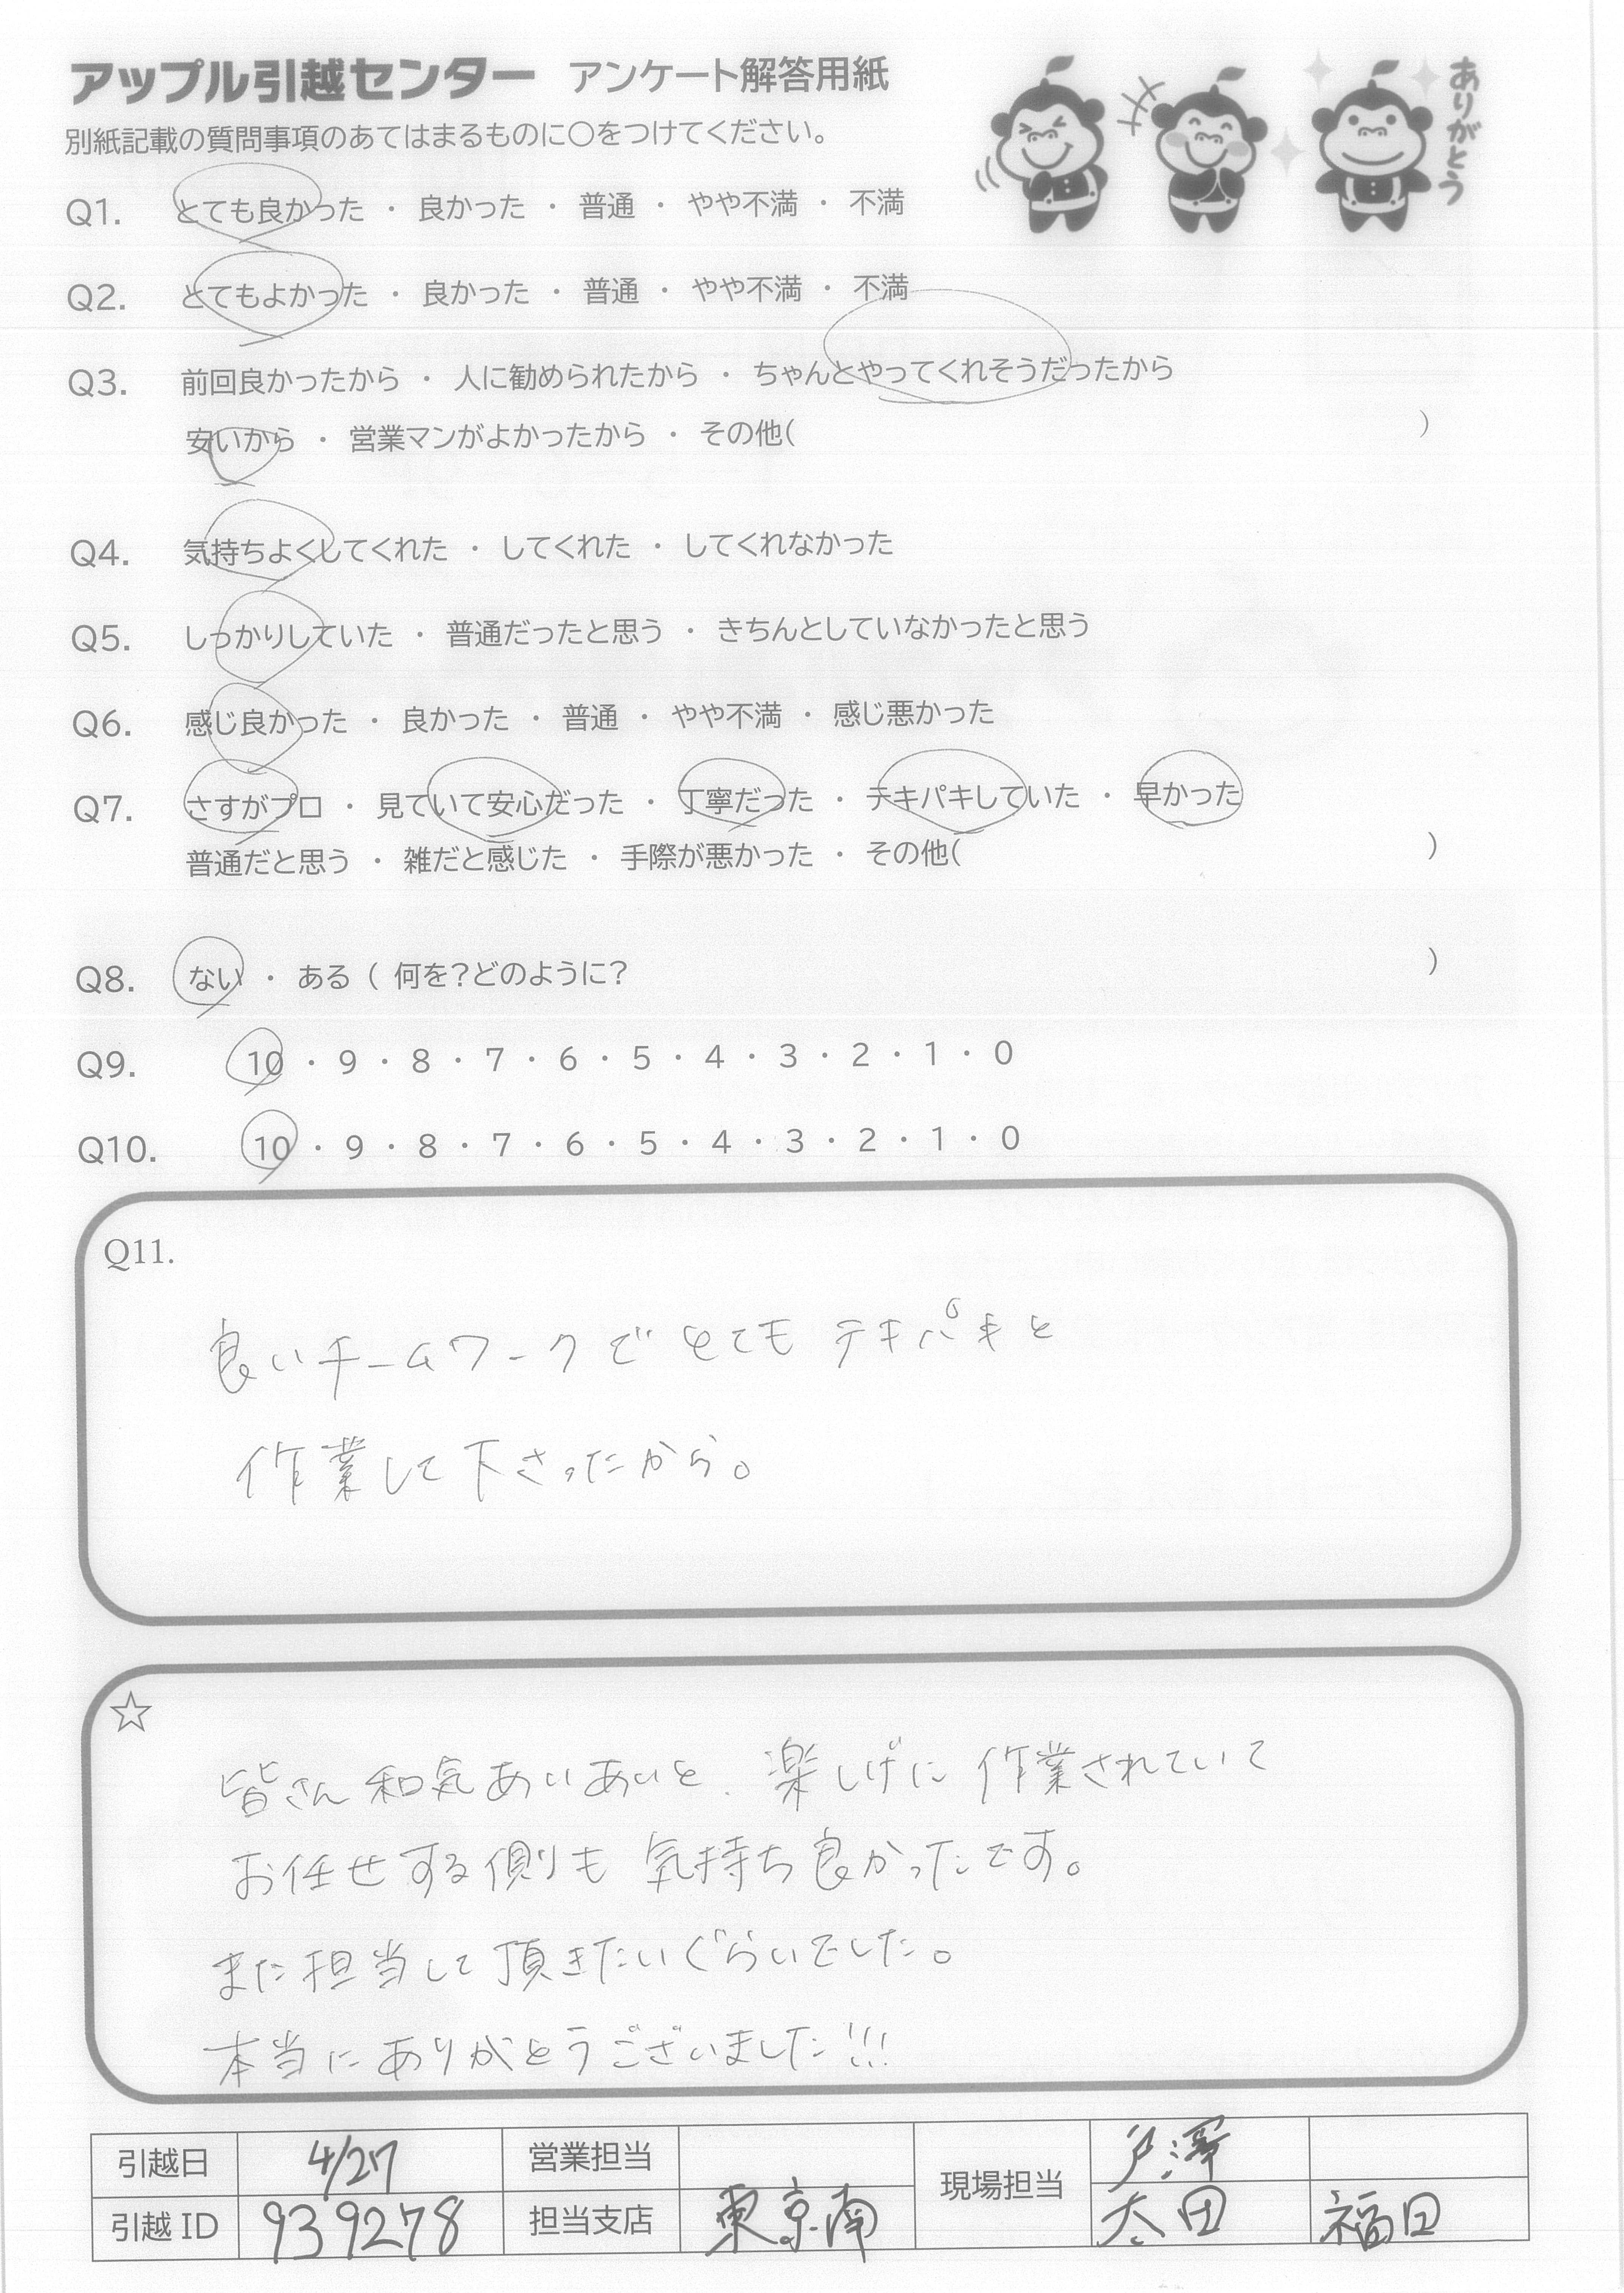 アップル引越センター アンケート解答用紙
ありがとう
別紙記載の質問事項のあてはまるものに○をつけてください。
Q1. とても良かった ・ 良かった ・ 普通 ・ やや不満 ・ 不満
Q2. とてもよかった ・ 良かった ・ 普通 ・ やや不満 ・ 不満
Q3. 前回良かったから ・ 人に勧められたから ・ ちゃんとやってくれそうだったから
安いから ・ 営業マンがよかったから ・ その他( )
Q4. 気持ちよくしてくれた ・ してくれた ・ してくれなかった
Q5. しっかりしていた ・ 普通だったと思う ・ きちんとしていなかったと思う
Q6. 感じ良かった ・ 良かった ・ 普通 ・ やや不満 ・ 感じ悪かった
Q7. さすがプロ ・ 見ていて安心だった ・ 丁寧だった ・ テキパキしていた ・ 早かった
普通だと思う ・ 雑だと感じた ・ 手際が悪かった ・ その他( )
Q8. ない ・ ある ( 何を?どのように? )
Q9. 10 ・ 9 ・ 8 ・ 7 ・ 6 ・ 5 ・ 4 ・ 3 ・ 2 ・ 1 ・ 0
Q10. 10 ・ 9 ・ 8 ・ 7 ・ 6 ・ 5 ・ 4 ・ 3 ・ 2 ・ 1 ・ 0
Q11.
良いチームワークでとても テキパキと
作業して下さったから。
☆
皆さん和気あいあいと、楽しげに作業されていて
お任せする側も 気持ち良かったです。
また担当して頂きたいぐらいでした。
本当にありがとうございました!!!
引越日 4/27 営業担当 現場担当 戸澤
引越ID 939278 担当支店 東京南 太田 福田